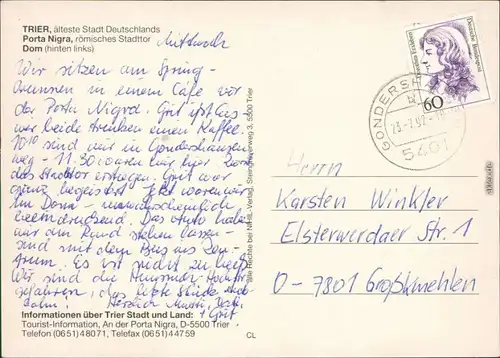 TRIER, älteste Stadt Deutschlands
Porta Nigra, römisches Stadttor
Dom (hinten links)
Mittwoch
Wir sitzen am Spring-
brunnen in einem Café vor
der Porta Nigra. Grit ißt Eis
wir beide trinken einen Kaffee.
10¹⁰ sind wir in Gondershausen
weg - 11.30 waren wir hier
das Stadttor erstiegen. Grit war
ganz begeistert. Jetzt waren wir
im Dom - wahrscheinlich
beeindruckend. Das Auto haben
wir am Rand stehen lassen -
sind mit dem Bus ins Zen-
trum. Es ist nicht zu heiß
Wir sind die Hunsrück-Höhenstr.
gefahren, das letzte Stück
Herzlich Mutti,
+ Grit
Informationen über Trier Stadt und Land:
Tourist-Information, An der Porta Nigra, D-5500 Trier
Telefon (0651) 48071, Telefax (0651) 44759
CL
Steinhausenweg 3, 5500 Trier
Deutsche Bundespost
60
GONDERSHAUSEN
5401
Herrn
Karsten Winkler
Elsterwerdaer Str. 1
O-7801 Großkmehlen